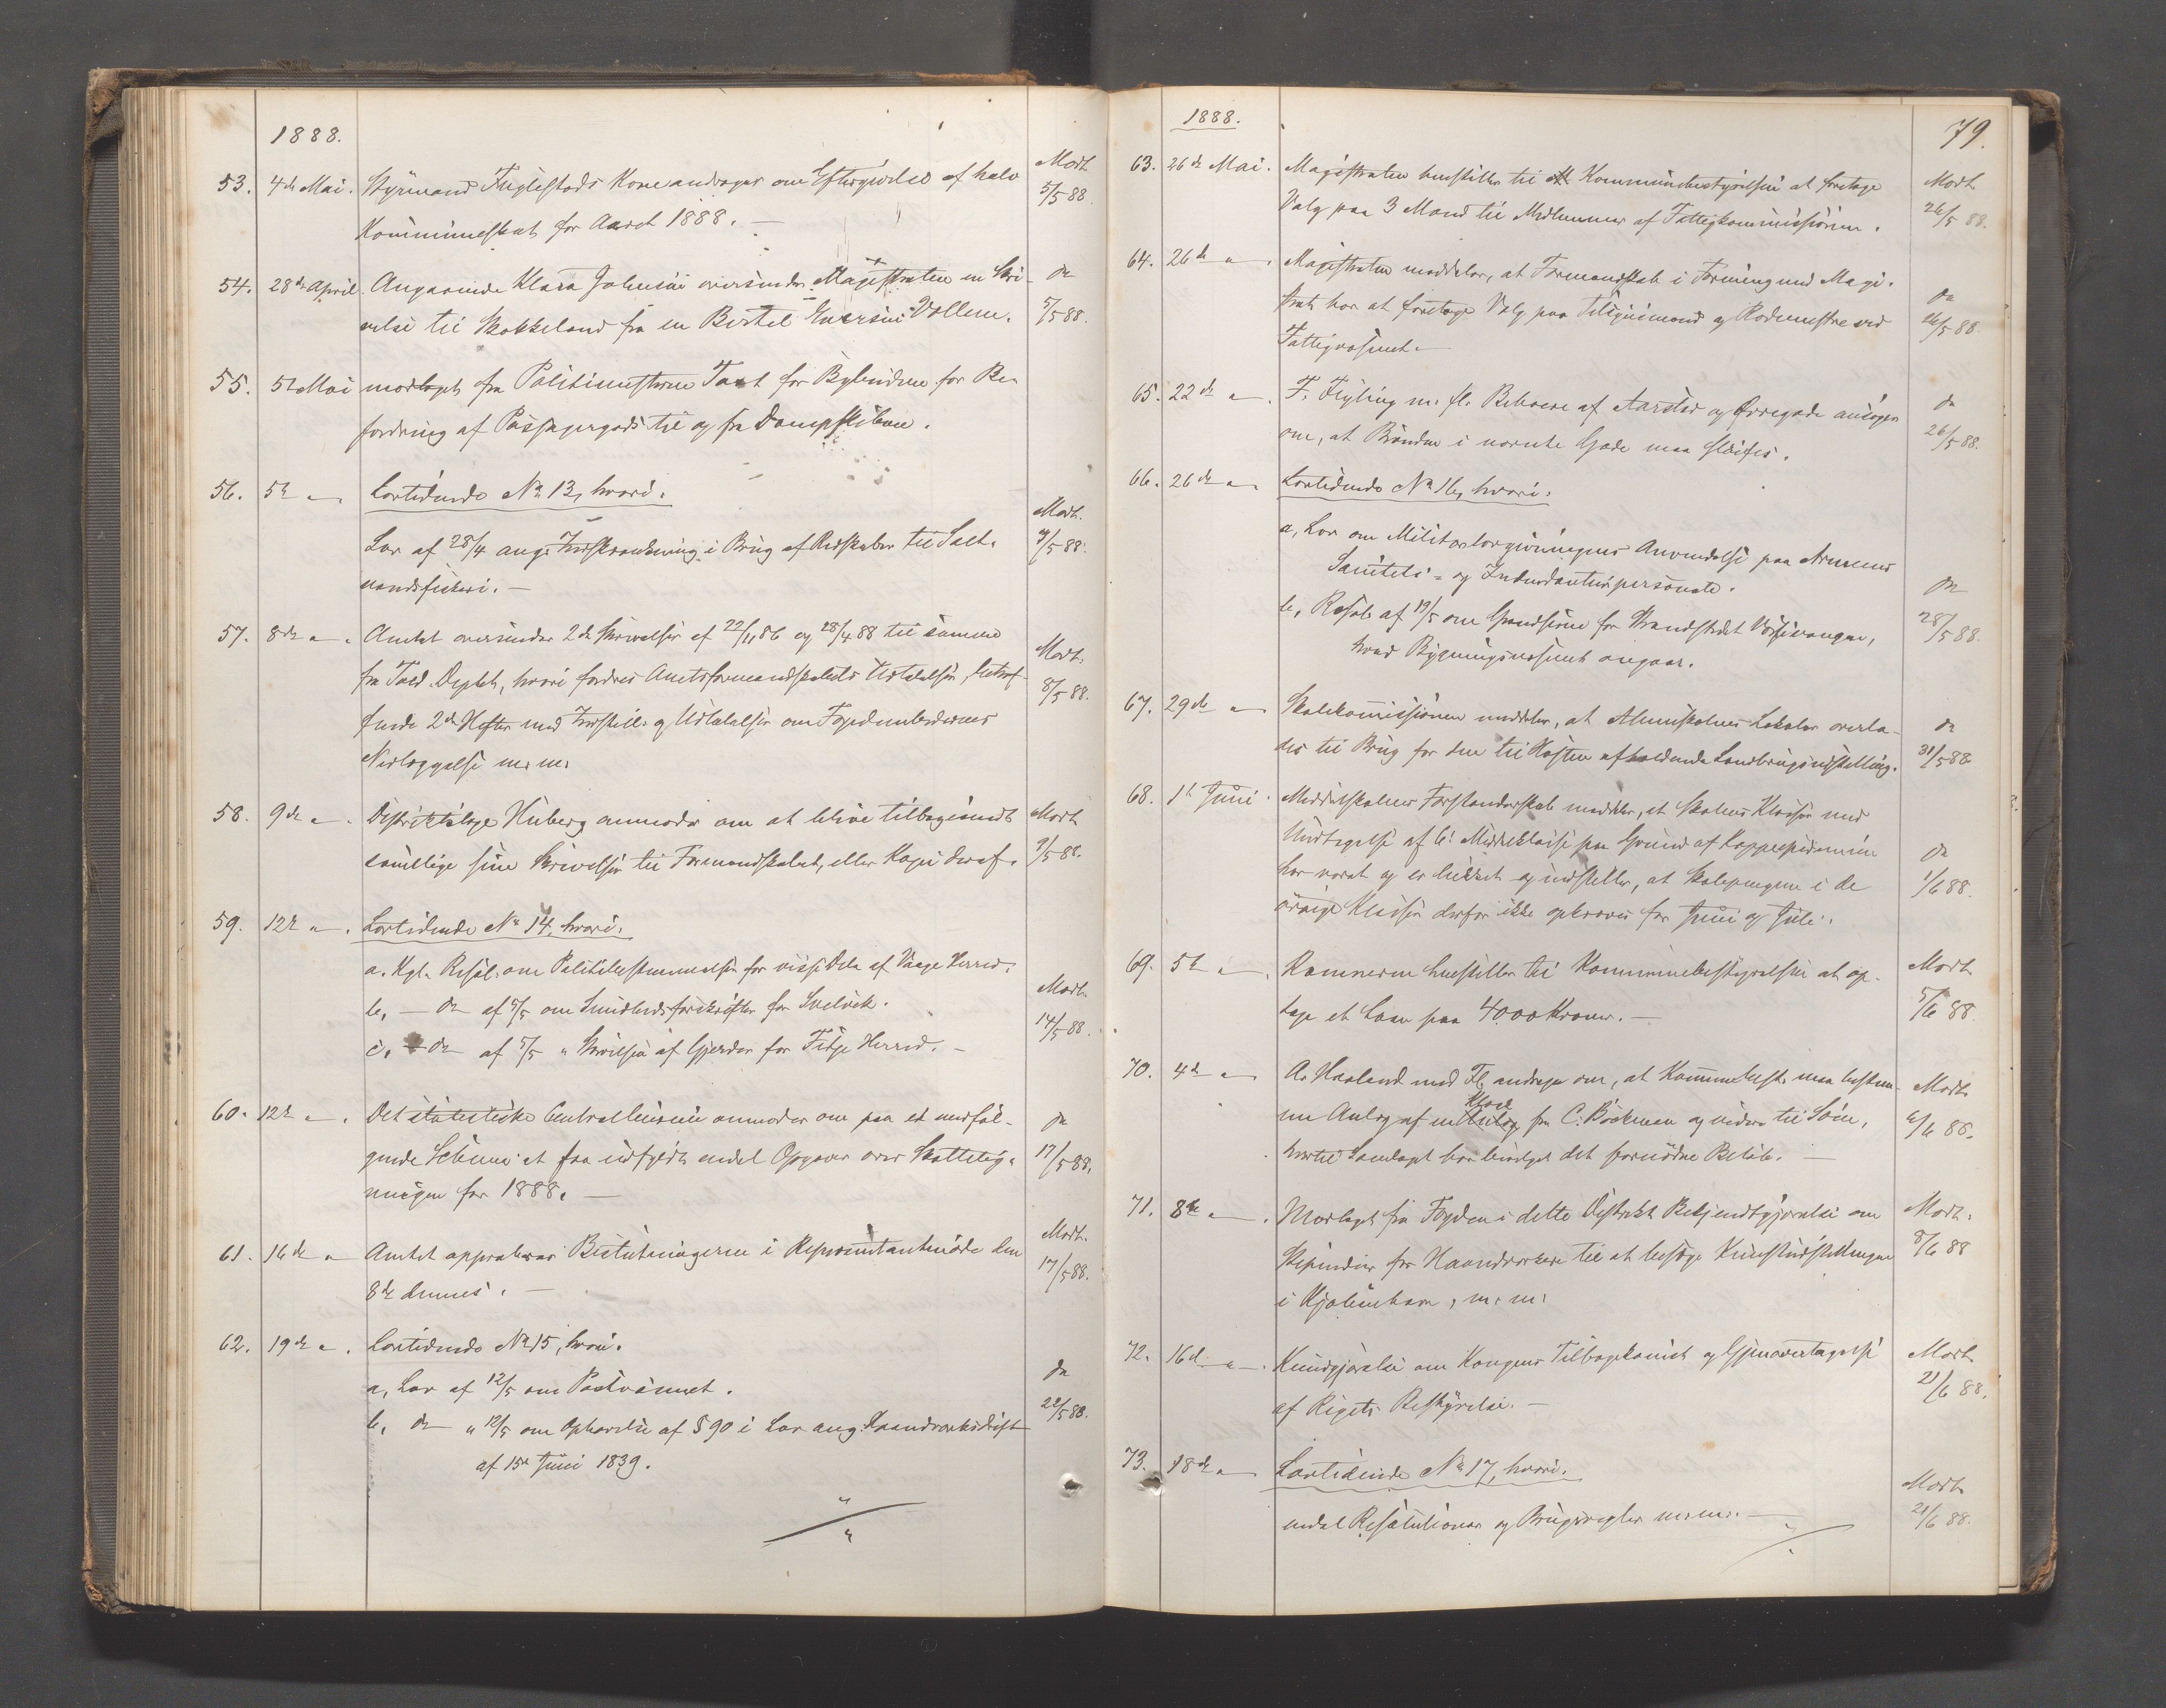 1888.
53. 4de Mai. Styrmand Fuglestads Kone andrager om Eftergivelse af halv Modt.
Kommuneskat for Aaret 1888. — 5/5 88.
54. 28de April. Angaaende Klara Johnsen oversender Magistraten en Skri- Do
velse til Stokkeland fra en Bertel Evensen Vollem. 5/5 88.
55. 5te Mai modtaget fra Politimesteren Taxt for Bybudene for Be-
fordring af Passagergods til og fra Dampskibene.
56. 5te " Lovtidende No 13, hvori: Modt.
Lov af 28/4 ang. Indskrænkning i Brug af Redskaber til Salt- 7/5 88.
vandsfiskeri. —
57. 8de " Amtet oversender 2de Skrivelser af 22/11 86 og 28/4 88 til samme Modt.
fra Just. Deptet, hvori fordres Amtsformandskabets Udtalelse, betræf- 8/5 88.
fende 2de Hefter med Indstill. og Udtalelser om Fogedembedernes
Nedlæggelse m. m.
58. 9de " Distriktslæge Kiberg anmoder om at blive tilbagesendt Modt.
samtlige sine Skrivelser til Formandskabet, eller Kopi deraf. 9/5 88.
59. 12te " Lovtidende No 14, hvori:
a. Kgl. Resol. om Politibestemmelser for visse Dele af Vaage Herred.
b. — Do af 5/5 om Sundhedsforskrifter for Svelvik. Modt.
c. — Do af 5/5 " Skrivelsen af Gjerder for Fitje Herred. — 14/5 88.
60. 12te " Det statistiske Centralbureau anmoder om paa et medføl- Do
gende Schema at faa udfyldt endel Opgaver over Skattelig- 17/5 88.
ningen for 1888. —
61. 16de " Amtet approberer Beslutningerne i Repræsentantmøde den Modt.
8de dennes. — 17/5 88.
62. 19de " Lovtidende No 15, hvori:
a, Lov af 12/5 om Postvæsenet. Do
b, Do " 12/5 om Ophævelse af § 90 i Lov ang. Haandværksdrift 22/5 88.
af 15de Juni 1839.
79.
1888.
63. 26de Mai. Magistraten henstiller til Kommunebestyrelsen at foretage Modt.
Valg paa 3 Mænd til Medlemmer af Fattigkommissionen. 26/5 88.
64. 26de " Magistraten meddeler, at Formandskab i Forening med Magi-
strat har at foretage Valg paa Tilsynsmænd og Rodemestre ved Do 26/5 88.
Fattigvæsenet. —
65. 22de " F. Feyling m. fl. Beboere af Aarstad og Ørregade ansøger Do
om, at Brønden i nævnte Gade maa sløifes. 26/5 88.
66. 26de " Lovtidende No 16, hvori:
a, Lov om Militærlovgivningens Anvendelse paa Armeens
Sanitets- og Intendanturpersonale. Do
b, Resol. af 19/5 om Grændserne for Strandstedet Vossevangen, 28/5 88.
hvad Bygningsvæsenet angaar.
67. 29de " Skolekommissionen meddeler, at Almueskolens Lokaler overla- Do
des til Brug for den til Høsten afholdende Landbrugsudstilling. 31/5 88.
68. 1ste Juni. Middelskolens Forstanderskab meddeler, at Skolens Klasser med
Undtagelse af 6. Middelklasse paa Grund af Koppeepidemien Do
har været og er lukket og indstiller, at Skolepengene i de 1/6 88.
øvrige Klasser derfor ikke opkræves for Juni og Juli.
69. 5te " Kæmneren henstiller til Kommunebestyrelsen at op- Modt.
tage et Laan paa 4000 Kroner. — 5/6 88.
70. 4de " A. Haaland med Fl. andrager om, at Kommunebest. maa bestem- Modt.
me Anlæg af en Kloak fra C. Bøckman og videre til Søen, 6/6 88.
hvortil Samlaget har bevilget det fornødne Beløb. —
71. 8de " Modtaget fra Fogden i dette Distrikt Bekjendtgjørelse om Modt.
Stipendier for Haandværkere til at besøge Kunstudstillingen 8/6 88
i Kjøbenhavn, m. m.
72. 16de " Kundgjørelse om Kongens Tilbagekomst og Gjenovertagelse Modt.
af Rigets Bestyrelse. — 21/6 88.
73. 18de " Lovtidende No 17, hvori: Modt.
endel Resolutioner og Brugsregler m. m. — 21/6 88.